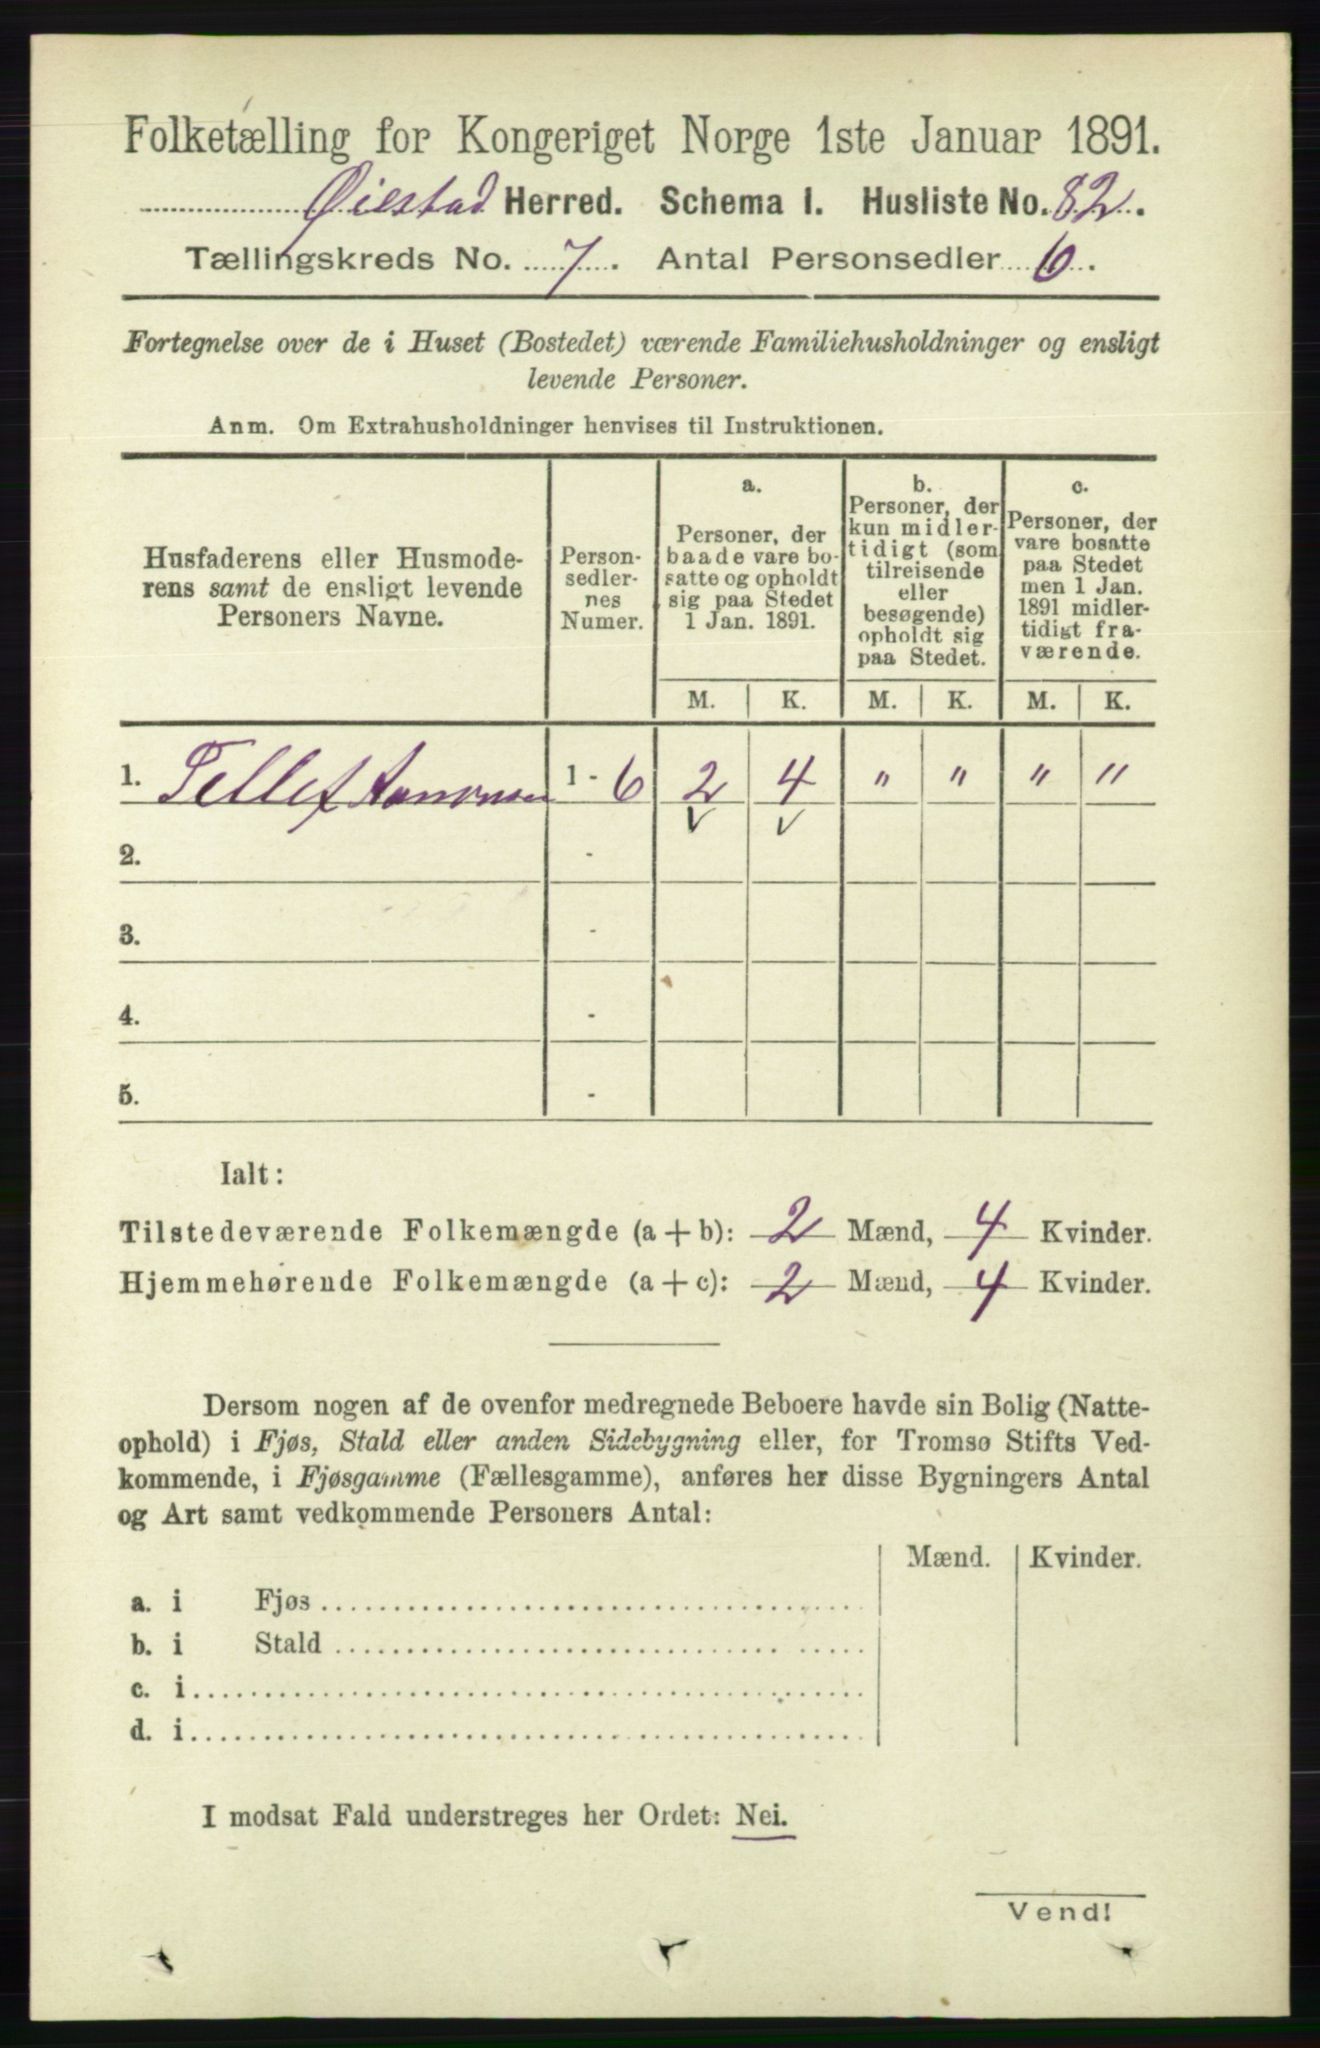 Folketælling for Kongeriget Norge 1ste Januar 1891.
Øiestad Herred. Schema I. Husliste No. 82.
Tællingskreds No. 7. Antal Personsedler 6.
Fortegnelse over de i Huset (Bostedet) værende Familiehusholdninger og ensligt
levende Personer.
Anm. Om Extrahusholdninger henvises til Instruktionen.
Husfaderens eller Husmode-
rens samt de ensligt levende
Personers Navne.
Person-
sedler-
nes
Numer.
a.
Personer, der
baade vare bo-
satte og opholdt
sig paa Stedet
1 Jan. 1891.
b.
Personer, der
kun midler-
tidigt (som
tilreisende
eller
besøgende)
opholdt sig
paa Stedet.
c.
Personer, der
vare bosatte
paa Stedet
men 1 Jan.
1891 midler-
tidigt fra-
værende.
M. K. M. K. M. K.
1. Tellef 1 - 6 2 4 " " " "
2. -
3. -
4. -
5. -
Ialt:
Tilstedeværende Folkemængde (a + b): 2 Mænd, 4 Kvinder.
Hjemmehørende Folkemængde (a + c): 2 Mænd, 4 Kvinder.
Dersom nogen af de ovenfor medregnede Beboere havde sin Bolig (Natte-
ophold) i Fjøs, Stald eller anden Sidebygning eller, for Tromsø Stifts Ved-
kommende, i Fjøsgamme (Fællesgamme), anføres her disse Bygningers Antal
og Art samt vedkommende Personers Antal:
Mænd. Kvinder.
a. i Fjøs
b. i Stald
c. i
d. i
I modsat Fald understreges her Ordet: Nei.
Vend!